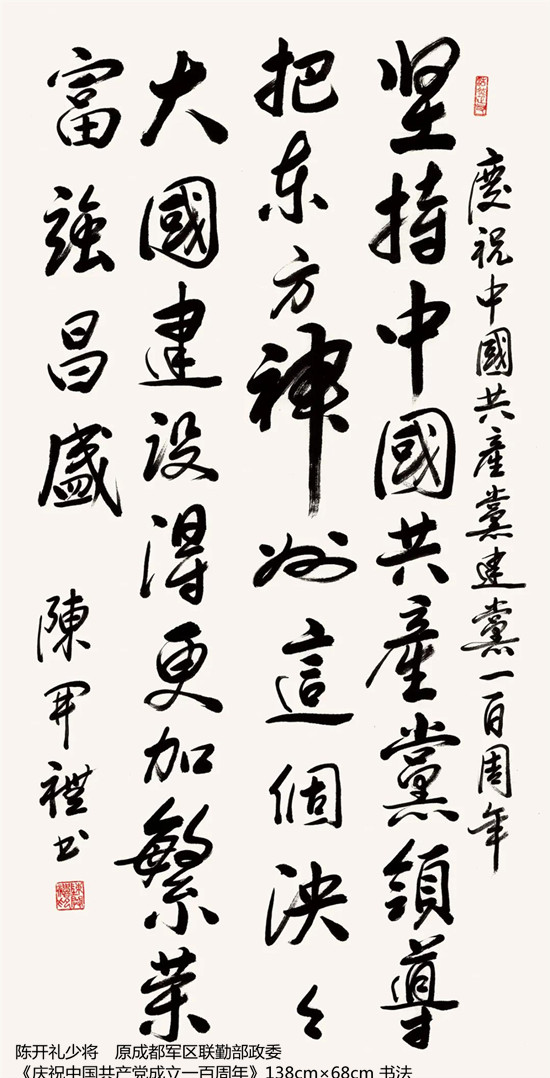 慶祝中國共產黨建黨一百周年
坚持中國共產黨領導
把东方神州這個泱々
大國建设得更加繁荣
富強昌盛
陳開禮书
陈开礼少将 原成都军区联勤部政委
《庆祝中国共产党成立一百周年》138cm×68cm 书法